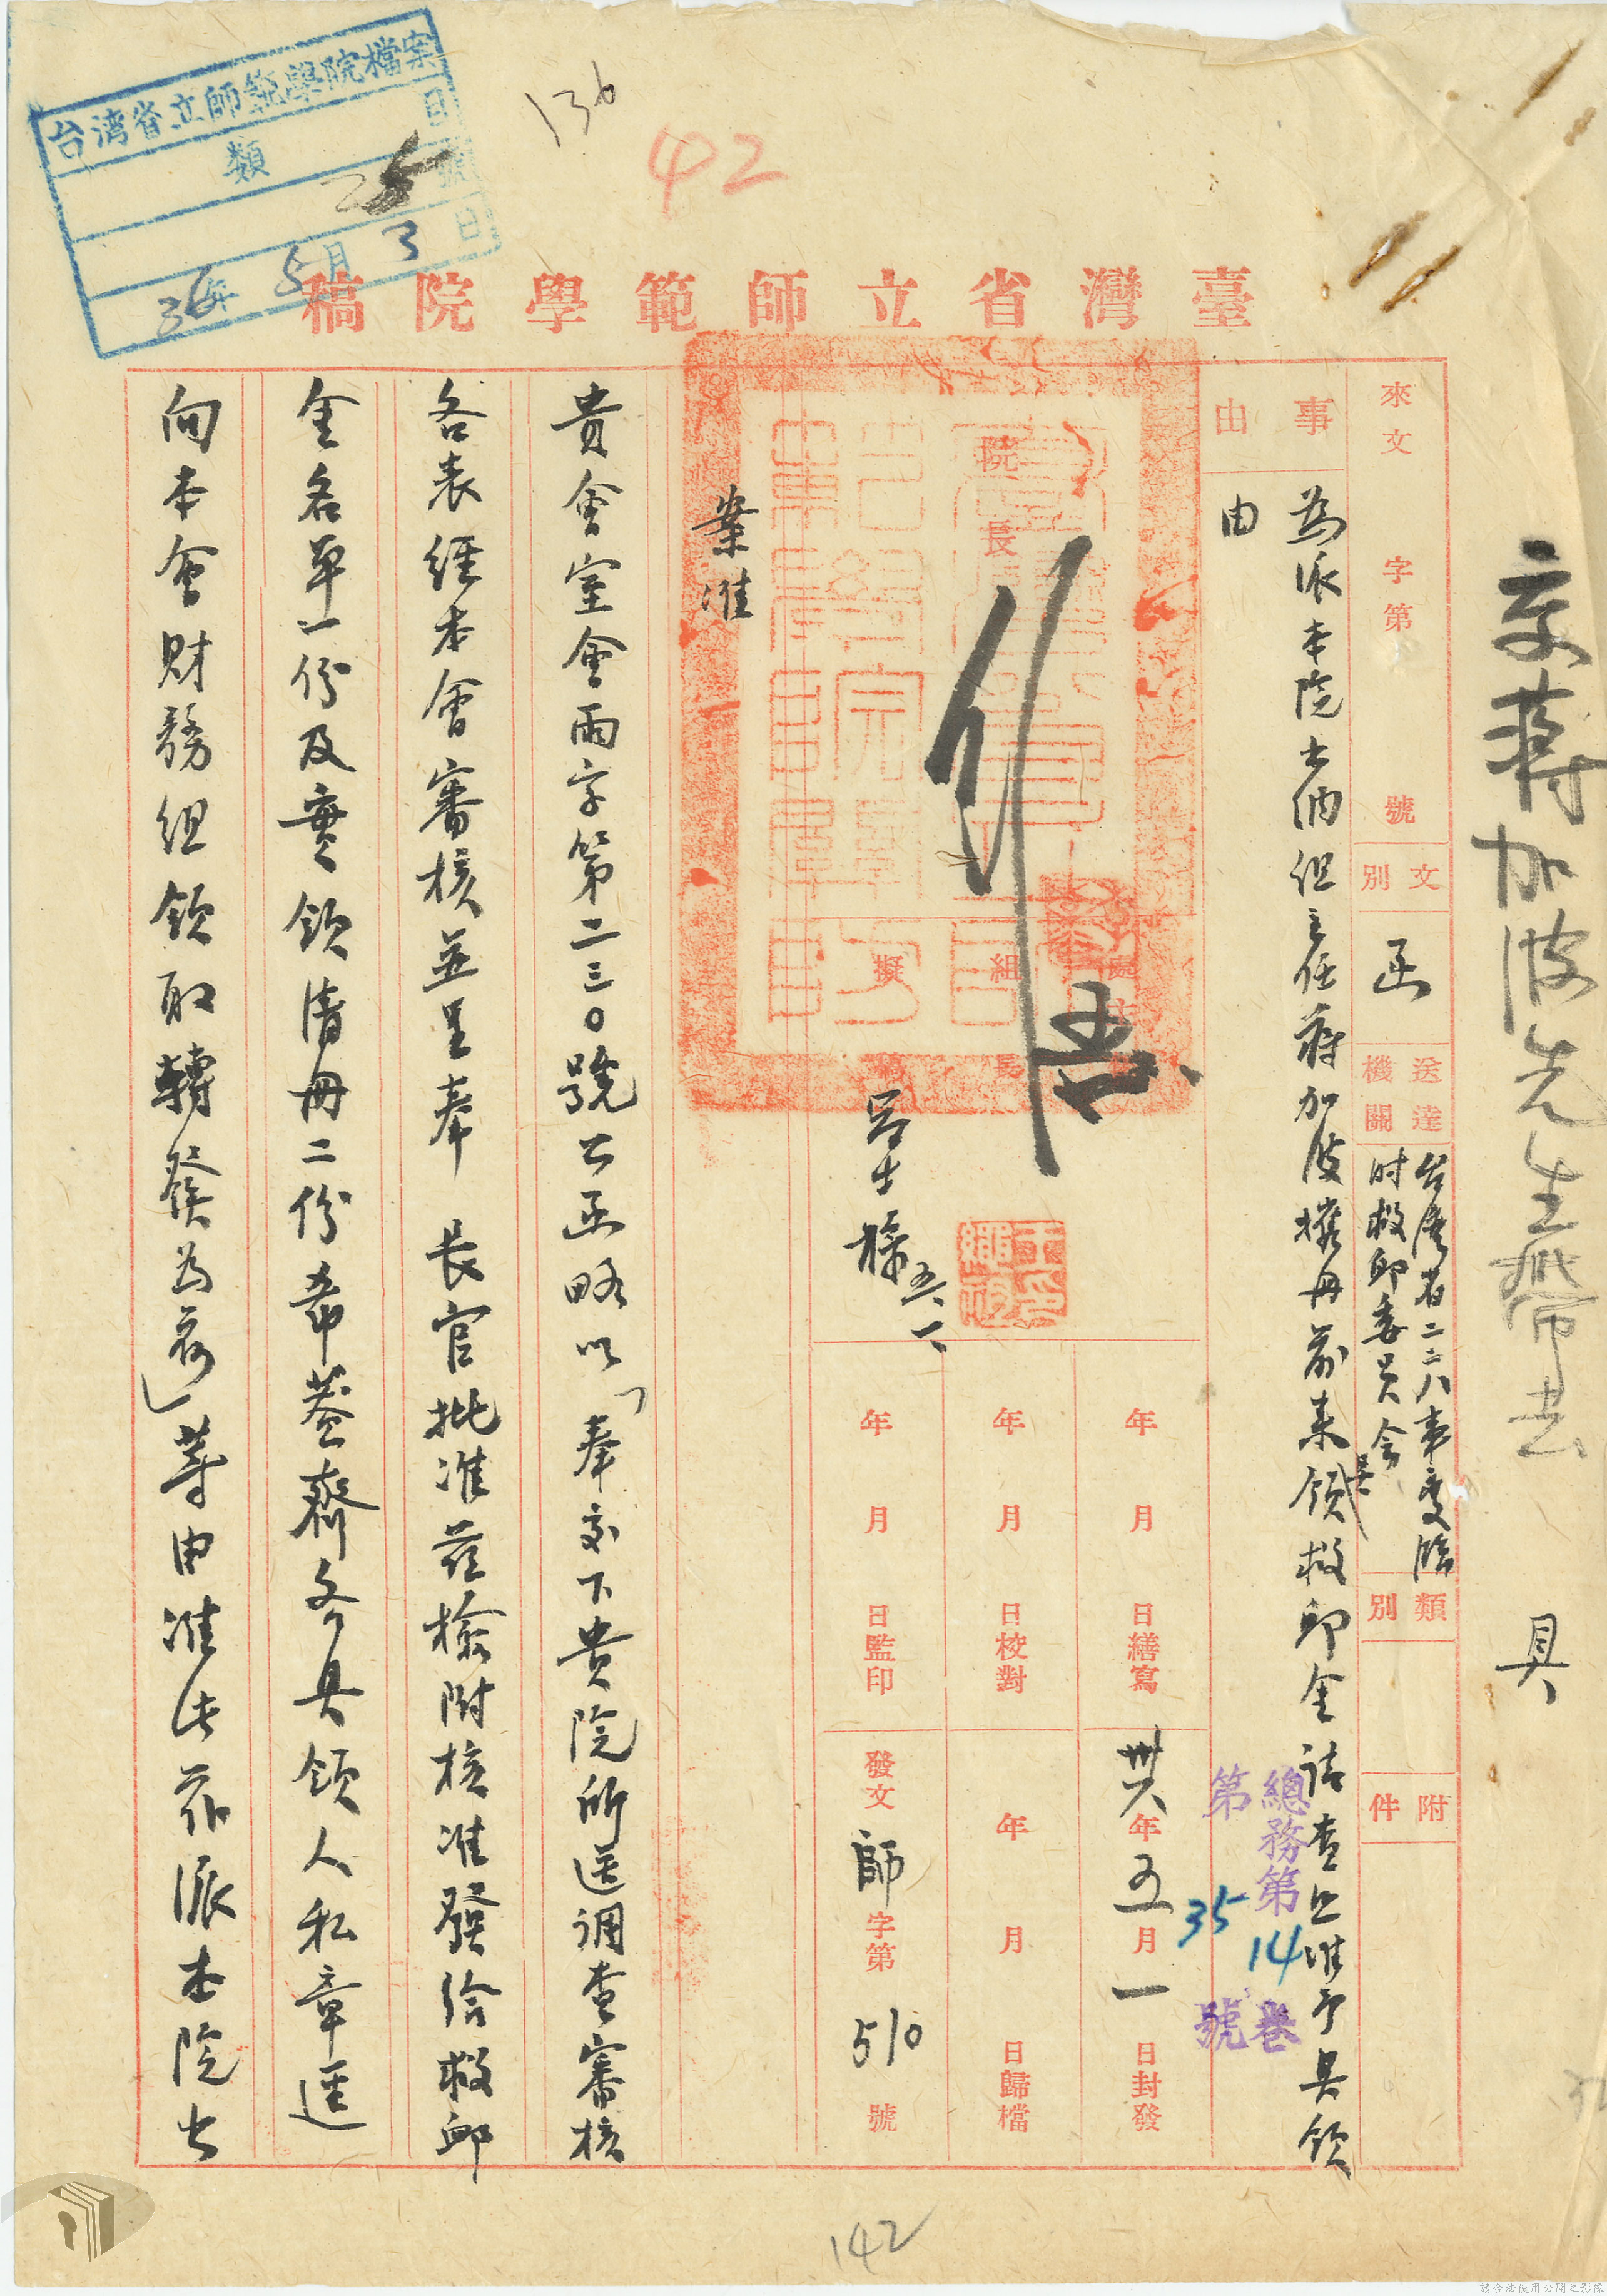 台湾省立師範學院檔案
目
類
25
號
36年5月3日
136
42
臺灣省立師範學院稿
交蔣加波先生帶去
具
來文 字第 號
文別 函
送達機關 台灣省二二八事變臨
時救卹委員会
類別
附件
事由
為派本院出納組主任蔣加波携冊前來領救卹金請查照准予具領
由
總務第14卷
第35號
院長
處長
組長
擬稿
年 月 日繕寫
年 月 日校對
年 月 日監印
卅六年五月一日封發
年 月 日歸檔
發文師字第510號
五、一、
案准
貴會室會雨字第二三〇號公函略以「奉交下貴院所送調查審核
各表經本會審核並呈奉 長官批准茲檢附核准發給救卹
金名單一份及實領清冊二份希蓋齊各具領人私章逕
向本會財務組領取轉發為荷」等由准此茲派本院出
142
請合法使用公開之影像